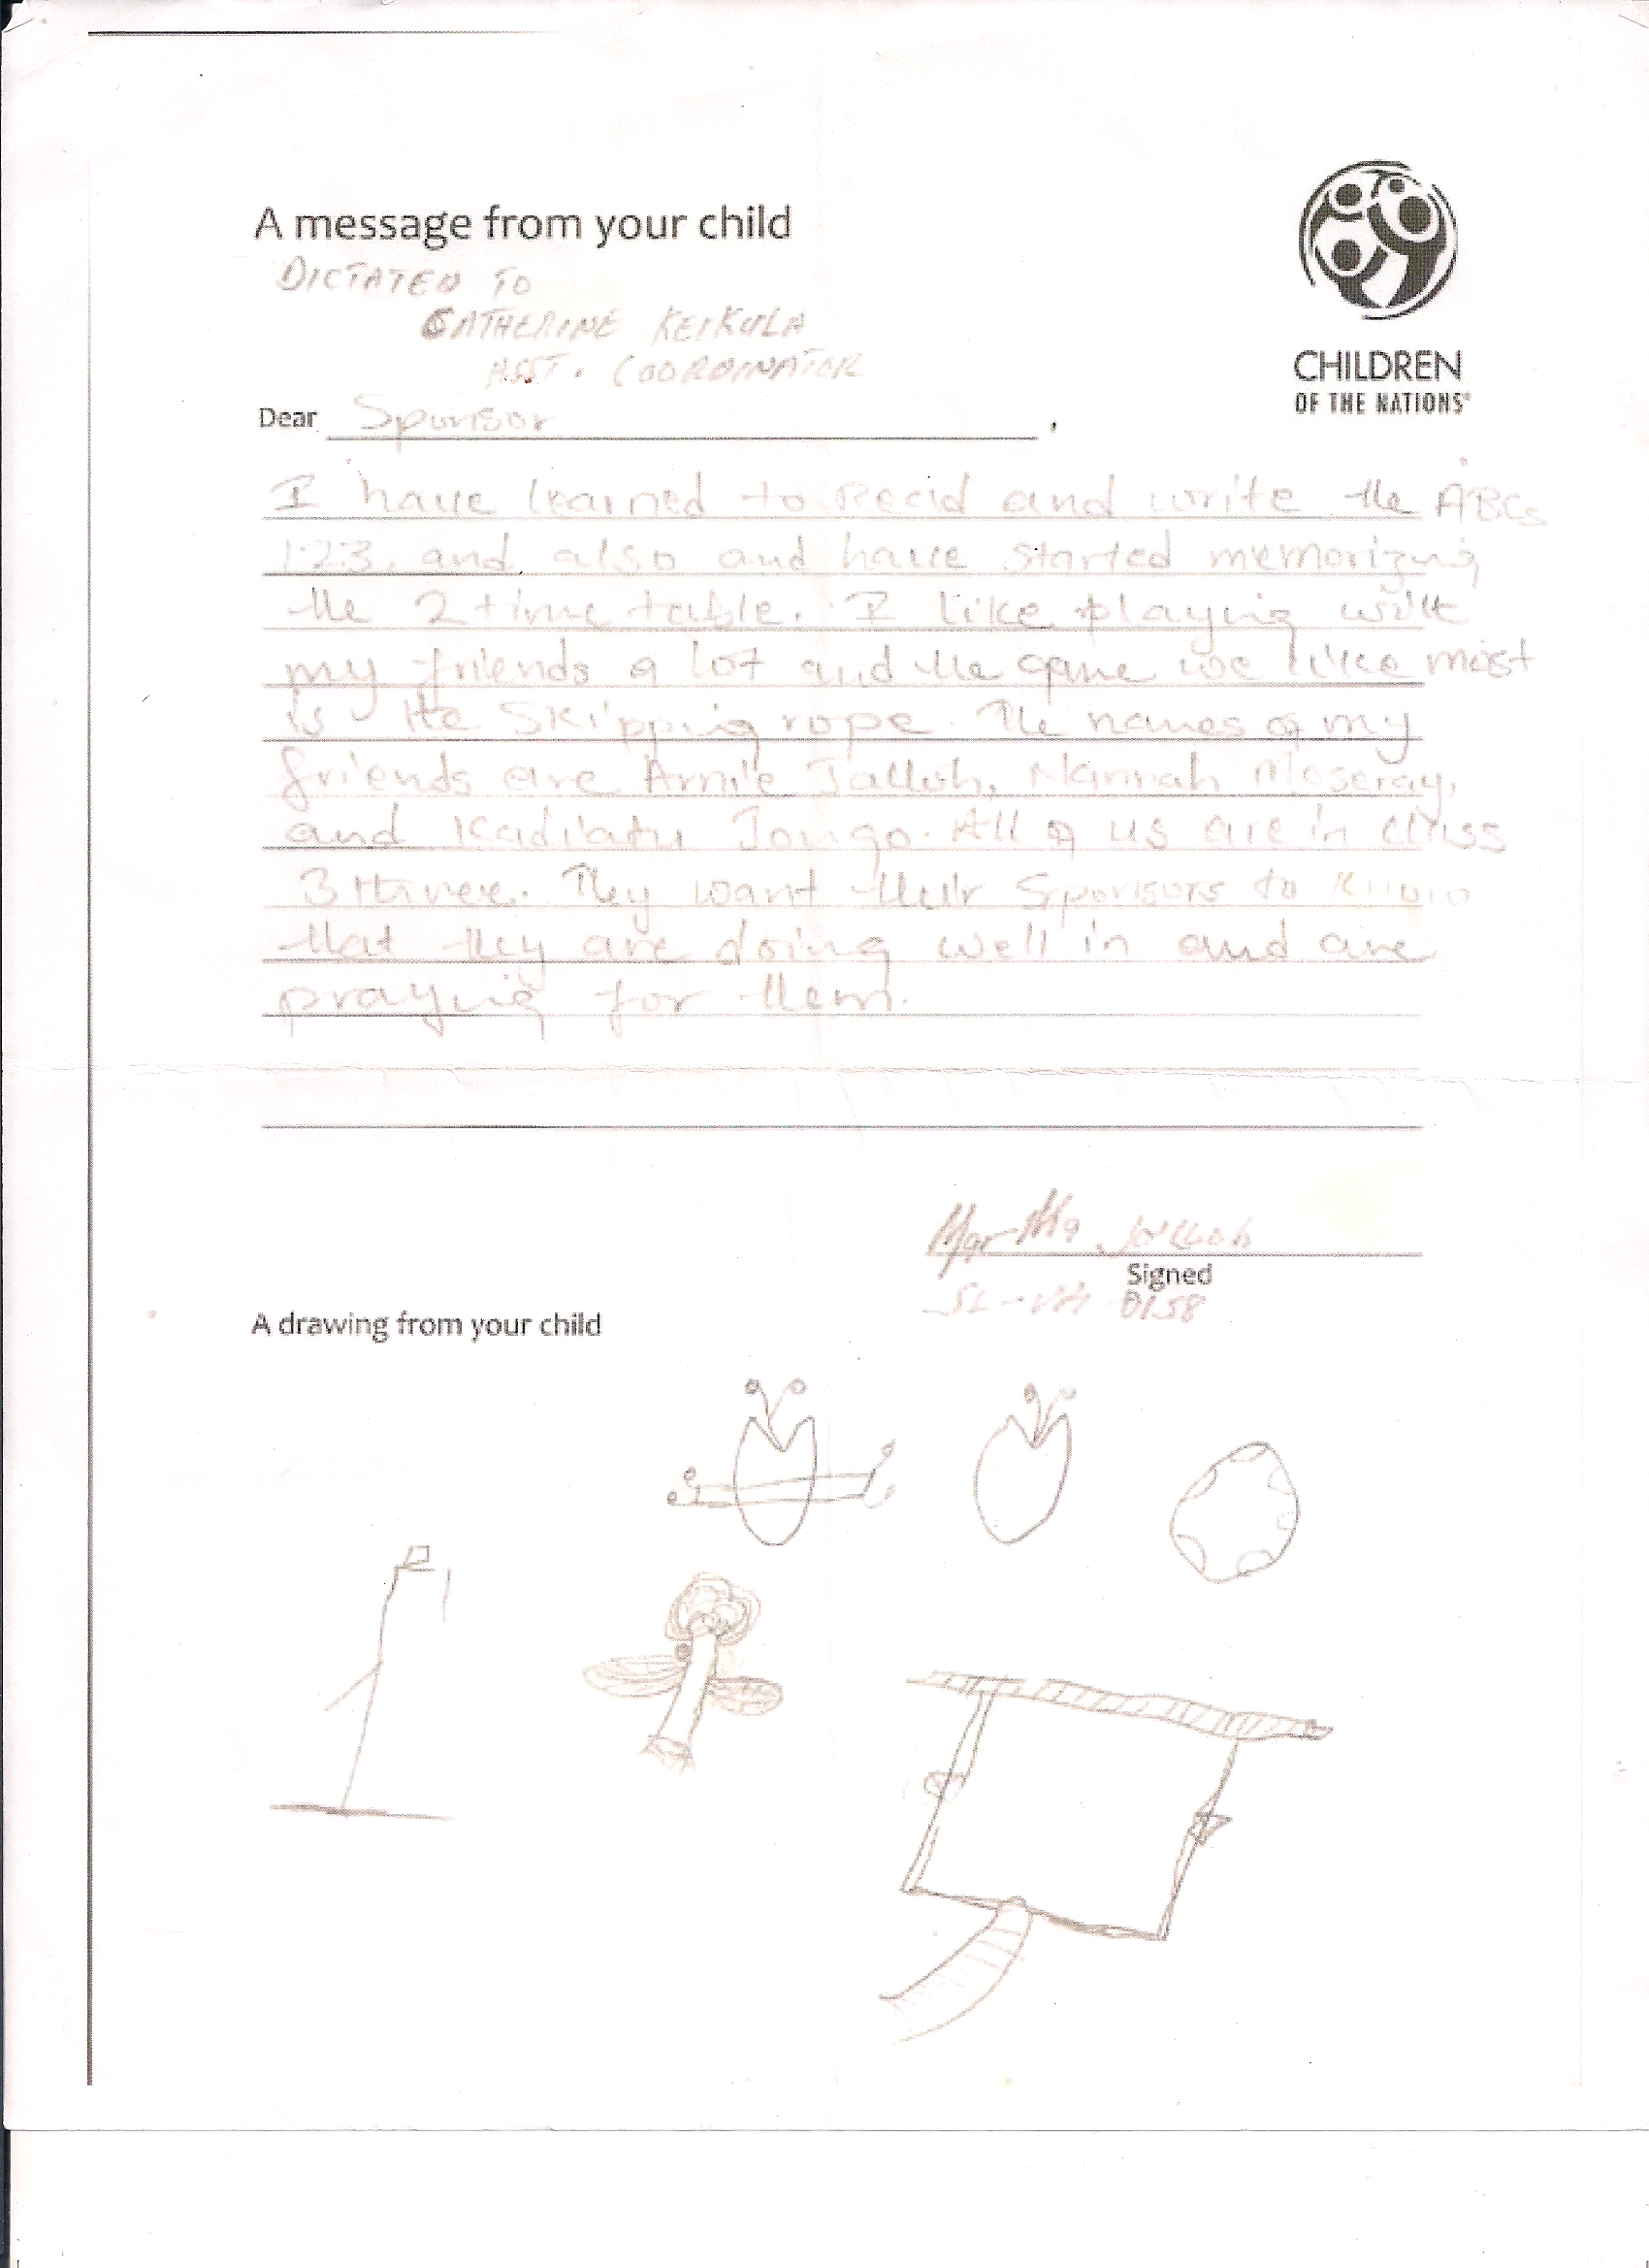 A message from your child
DICTATED TO
CATHERINE KEIKULA
ASST. COORDINATOR
CHILDREN
OF THE NATIONS
Dear Sponsor,
I have learned to Read and write the ABCs
123. and also and have started memorizing
the 2 time table. I like playing with
my friends a lot and the game we like most
is the Skipping rope. The names of my
friends are Amie Jalloh, Moseray,
and Kadiatu Jongo. All of us are in class
3 three. They want their Sponsors to know
that they are doing well in and are
praying for them.
Martha Jalloh
Signed
SL 0158
A drawing from your child